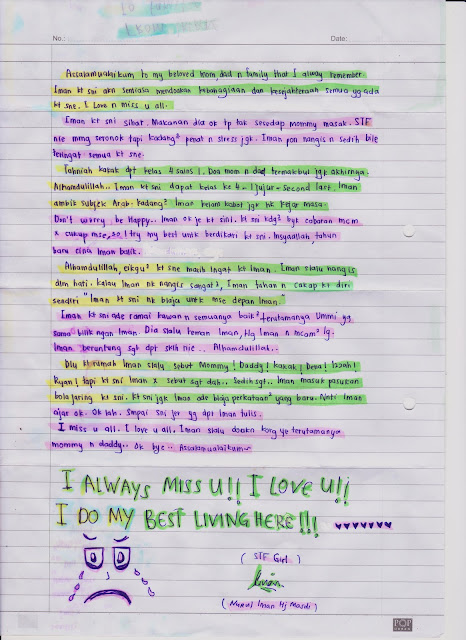 No.:
Date:
Assalamualaikum to my beloved mom dad n family that I alway remember.
Iman kt sni akn sentiasa mendoakan kebahagiaan dan kesejahteraan semua yg ada
kt sne. I Love n miss u all.
Iman kt sni sihat. Makanan dia ok tp tak sesedap mommy masak. STF
nie mmg seronok tapi kadang² penat n stress jgk. Iman pon nangis n sedih bile
teringat semua kt sne.
Tahniah kakak dpt kelas 4 sains 1. Doa mom n dad termakbul jgk akhirnya.
Alhamdulillah.. Iman kt sni dapat kelas ke 4. 1 Jujur - Second last. Iman
ambik subjek Arab. Kadang² Iman kelam kabot jgk nk kejar masa.
Don't worry. be Happy.. Iman ok je kt sini. kt sni kdg² byk cabaran mcm
x cukup mse, so I try my best untk berdikari kt sni. Insyaallah, tahun
baru cina Iman balik.
Alhamdulillah, cikgu² kt sne masih Ingat kt Iman. Iman slalu nangis
dlm hati. kalau Iman nk nangis sangat², Iman tahan n cakap kt diri
sendiri "Iman kt sni nk blaja untk mse depan Iman."
Iman kt sni ade ramai kawan n semuanya baik² terutamanya Ummi yg
sama bilik ngan Iman. Dia slalu teman Iman, Hg Iman n mcam² lg.
Iman beruntung sgt dpt sklh nie.. Alhamdulillah..
Dlu kt rumah Iman slalu sebut Mommy! Daddy! kakak! Dena! Izzah!
Ryan! tapi kt sni Iman x sebut sgt dah.. Sedih sgt.. Iman masuk pasukan
bola jaring kt sni. kt sni jgk Iman ade blaja perkataan² yang baru. Nnti Iman
ajar ok. Ok lah. Smpai sni jer yg dpt Iman tulis.
I miss u all. I love u all. Iman slalu doakn korg ye terutamanya
mommy n daddy.. Ok bye.. Assalamualaikum~
I ALWAYS MISS U!! I LOVE U!!
I DO MY BEST LIVING HERE!!!
( STF Girl )
Iman
( Nurul Iman Hj Masdi )
POP